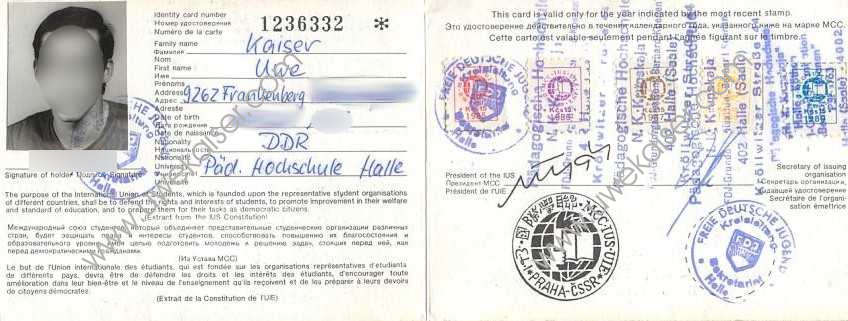 Identity card number
Номер удостоверения
Numéro de la carte
1236332 *
Family name
Фамилия
Nom
Kaiser
First name
Имя
Prénom
Uwe
Address
Адрес
Adresse
9262 Frankenberg
Date of birth
Дата рождения
Date de naissance
Nationality
Национальность
Nationalité
DDR
Päd. Hochschule Halle
Signature of holder
The purpose of the International Union of Students, which is founded upon the representative student organisations
of different countries, shall be to defend the rights and interests of students, to promote improvement in their welfare
and standard of education, and to prepare them for their tasks as democratic citizens.
(Extract from the IUS Constitution)
Международный союз студентов, который объединяет представительные студенческие организации различных
стран, будет защищать права и интересы студентов, способствовать повышению их благосостояния и
образовательного уровня, имея целью подготовить молодежь к решению задач, стоящих перед ней, как
перед демократическими гражданами.
(Из Устава МСС)
Le but de l'Union Internationale des étudiants, qui est fondée sur les organisations représentatives d'étudiants
de différents pays, devra être de défendre les droits et les intérêts des étudiants, d'encourager toute
amélioration dans leur bien-être et le niveau de l'enseignement qu'ils reçoivent et de les préparer à leurs devoirs
de citoyens démocrates.
(Extrait de la Constitution de l'UIE)
This card is valid only for the year indicated by the most recent stamp.
Это удостоверение действительно в течении календарного года, указанного ниже на марке МСС.
Cette carte est valable seulement pendant l'année figurant sur le timbre.
FREIE DEUTSCHE JUGEND
Kreisleitung
Sekretariat
Halle
Pädagogische Hochschule
N. K. Krupskaja
Halle (Saale)
Kröllwitzer Straße
402 Halle (Saale)
President of the IUS
Президент МСС
Président de l'UIE
Secretary of issuing
organisation
Секретарь организации,
выдавшей удостоверение
Secrétaire de l'organi-
sation émettrice
MCC·IUS·UIE
PRAHA-ČSSR
FREIE DEUTSCHE JUGEND
Kreisleitung
FDJ
Sekretariat
Halle
www.uwekaiser.com